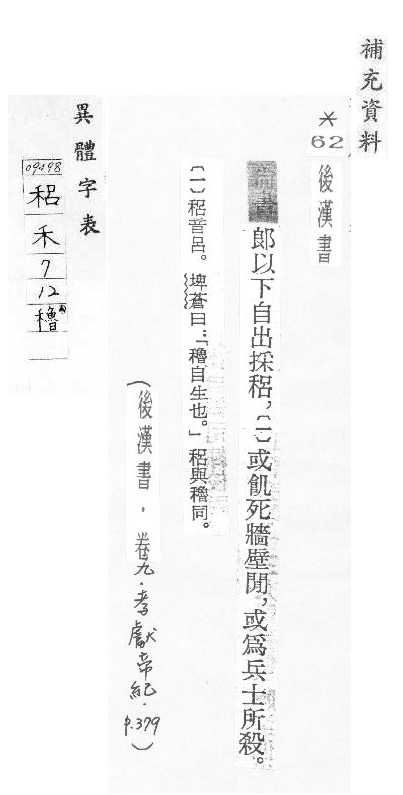 補充資料
*
62
後漢書
郎以下自出採稆，〔一〕或飢死牆壁閒，或爲兵士所殺。
〔一〕稆音呂。埤蒼曰：「穭自生也。」稆與穭同。
（後漢書．卷九．孝獻帝紀．P.379）
異體字表
09498
稆
禾
7
12